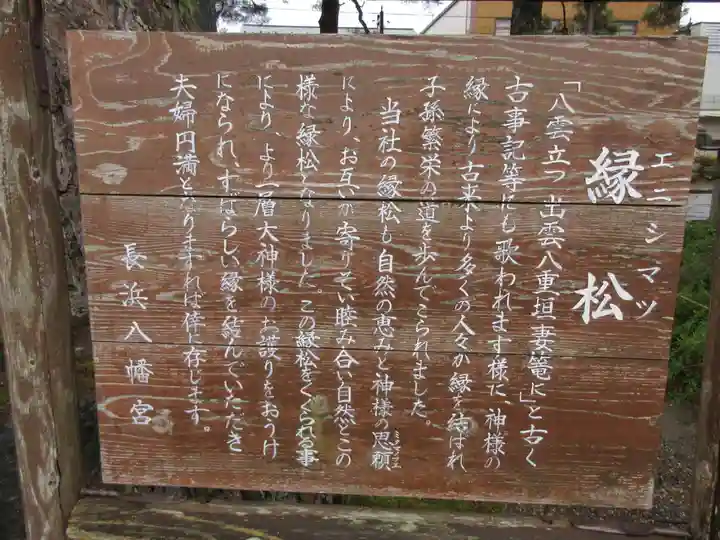 エニシマツ
縁松
「八雲立つ出雲八重垣妻篭に」と古く
古事記等にも歌われます様に、神様の
縁により古来より多くの人々が縁を結ばれ
子孫繁栄の道を歩んでこられました。
当社の縁松も自然の恵みと神様の恩頼
ミタマノフユ
により、お互いが寄りそい睦み合い自然とこの
様な縁松となりました。この縁松をくぐる事
により、より一層大神様のお護りをおうけ
になられ、すばらしい縁を結んでいただき
夫婦円満となりますれば倖に存じます。
長浜八幡宮